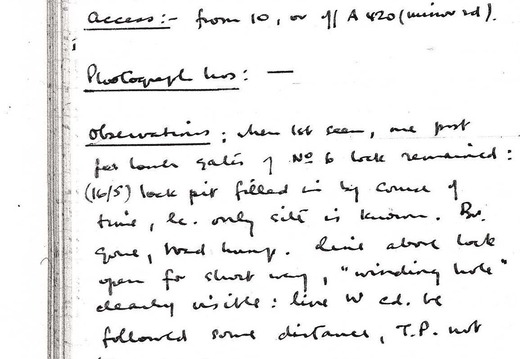 Access:- from 10, or off A420 (minor rd).
Photograph nos: —
Observations; when 1st seen, one post
for lower gates of No 6 lock remained:
(16/5) lock pit filled in by course of
time, i.e. only site is known. Br.
gone, road hump. Line above lock
open for short way, "winding hole"
clearly visible: line W cd. be
followed some distance, T.P. not